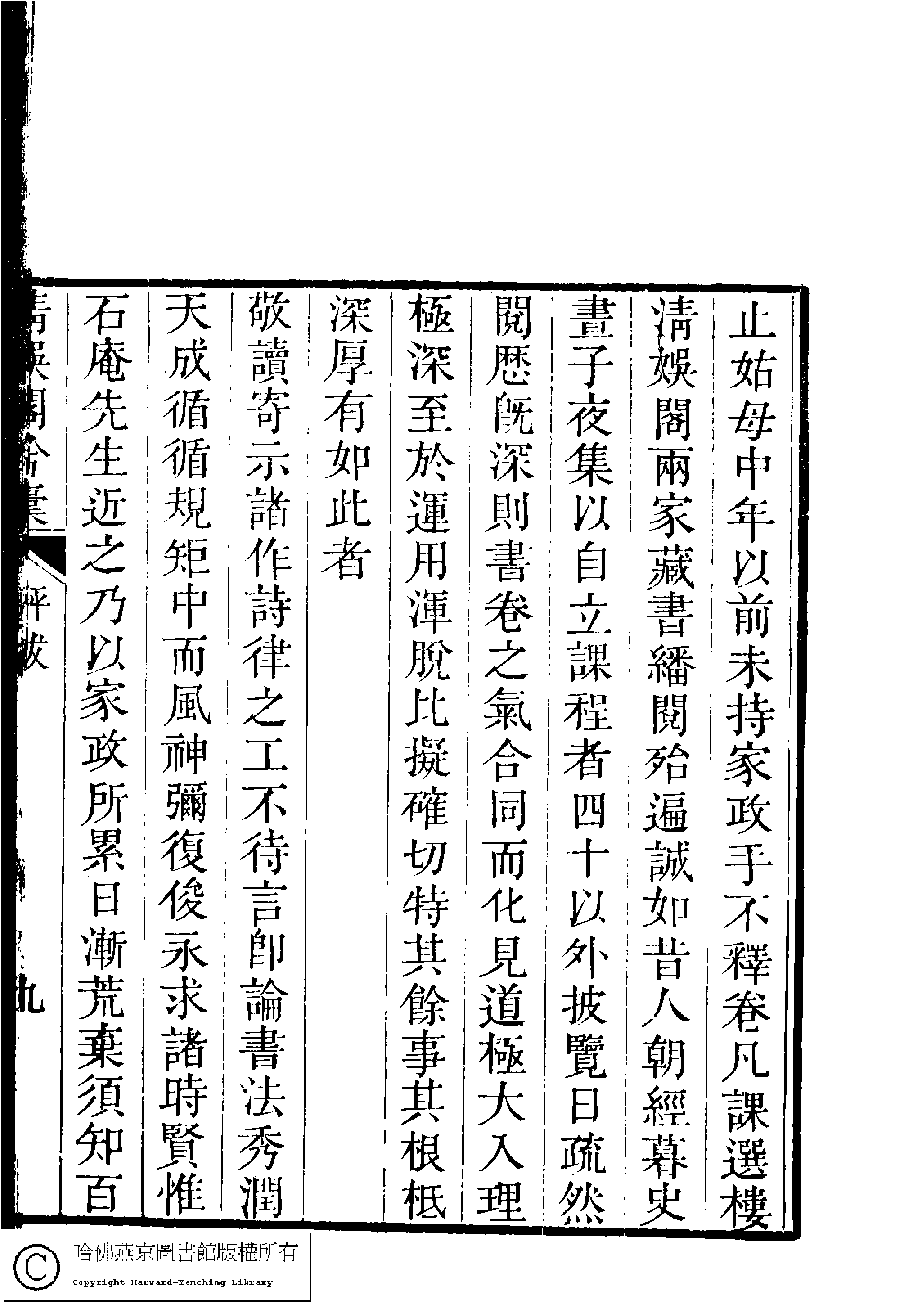 止姑母中年以前未持家政手不釋卷凡課選樓
淸娛閣兩家藏書繙閱殆遍誠如昔人朝經暮史
晝子夜集以自立課程者四十以外披覽日疏然
閱歷旣深則書卷之氣合同而化見道極大入理
極深至於運用渾脫比擬確切特其餘事其根柢
深厚有如此者
敬讀寄示諸作詩律之工不待言卽論書法秀潤
天成循循規矩中而風神彌復俊永求諸時賢惟
石庵先生近之乃以家政所累日漸荒棄須知百
淸娛閣吟稾
評跋
九
哈佛燕京圖書館版權所有
Copyright Harvard-Yenching Library